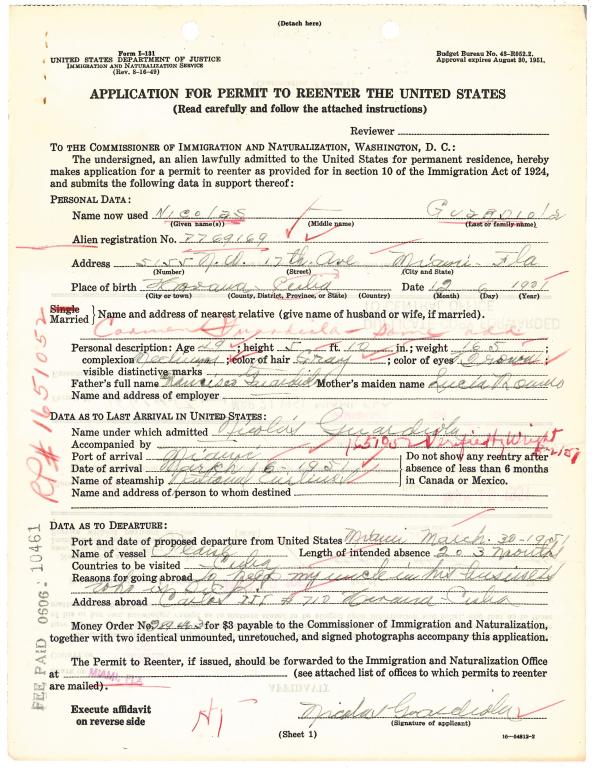 (Detach here)
Form I-131
UNITED STATES DEPARTMENT OF JUSTICE
IMMIGRATION AND NATURALIZATION SERVICE
(Rev. 8-16-49)
Budget Bureau No. 43-R052.2.
Approval expires August 30, 1951.
APPLICATION FOR PERMIT TO REENTER THE UNITED STATES
(Read carefully and follow the attached instructions)
Reviewer
TO THE COMMISSIONER OF IMMIGRATION AND NATURALIZATION, WASHINGTON, D. C.:
The undersigned, an alien lawfully admitted to the United States for permanent residence, hereby
makes application for a permit to reenter as provided for in section 10 of the Immigration Act of 1924,
and submits the following data in support thereof:
PERSONAL DATA:
Name now used Nicolas Guardiola
(Given name(s)) (Middle name) (Last or family name)
Alien registration No. 7769169
Address 5155 N.W. 17th. Ave Miami - Fla
(Number) (Street) (City and State)
Place of birth Havana - Cuba Date 12 6 1901
(City or town) (County, District, Province, or State) (Country) (Month) (Day) (Year)
Single
Married } Name and address of nearest relative (give name of husband or wife, if married).
Guardiola
Personal description: Age 49; height 5 ft. 10 in.; weight 165;
complexion Medium; color of hair Gray; color of eyes Brown;
visible distinctive marks
Father's full name Francisco Guardiola Mother's maiden name Lucia
Name and address of employer
DATA AS TO LAST ARRIVAL IN UNITED STATES:
Name under which admitted Nicolás Guardiola
Accompanied by
1651052 Verified H. Wright
Port of arrival Miami
Date of arrival March 16 - 1951
Name of steamship National Airlines
Do not show any reentry after
absence of less than 6 months
in Canada or Mexico.
Name and address of person to whom destined
DATA AS TO DEPARTURE:
Port and date of proposed departure from United States Miami March - 30 - 1951
Name of vessel Plane Length of intended absence 2 o 3 Months
Countries to be visited Cuba
Reasons for going abroad to help my uncle in his business
who is sick
Address abroad Carlos III # 710 Havana - Cuba
Money Order No. for $3 payable to the Commissioner of Immigration and Naturalization,
together with two identical unmounted, unretouched, and signed photographs accompany this application.
The Permit to Reenter, if issued, should be forwarded to the Immigration and Naturalization Office
at MIAMI, FLA (see attached list of offices to which permits to reenter
are mailed).
Execute affidavit
on reverse side
Nicolas Guardiola
(Signature of applicant)
(Sheet 1)
16—54812-2
RP# 1651052
FEE PAID 0606: 10461